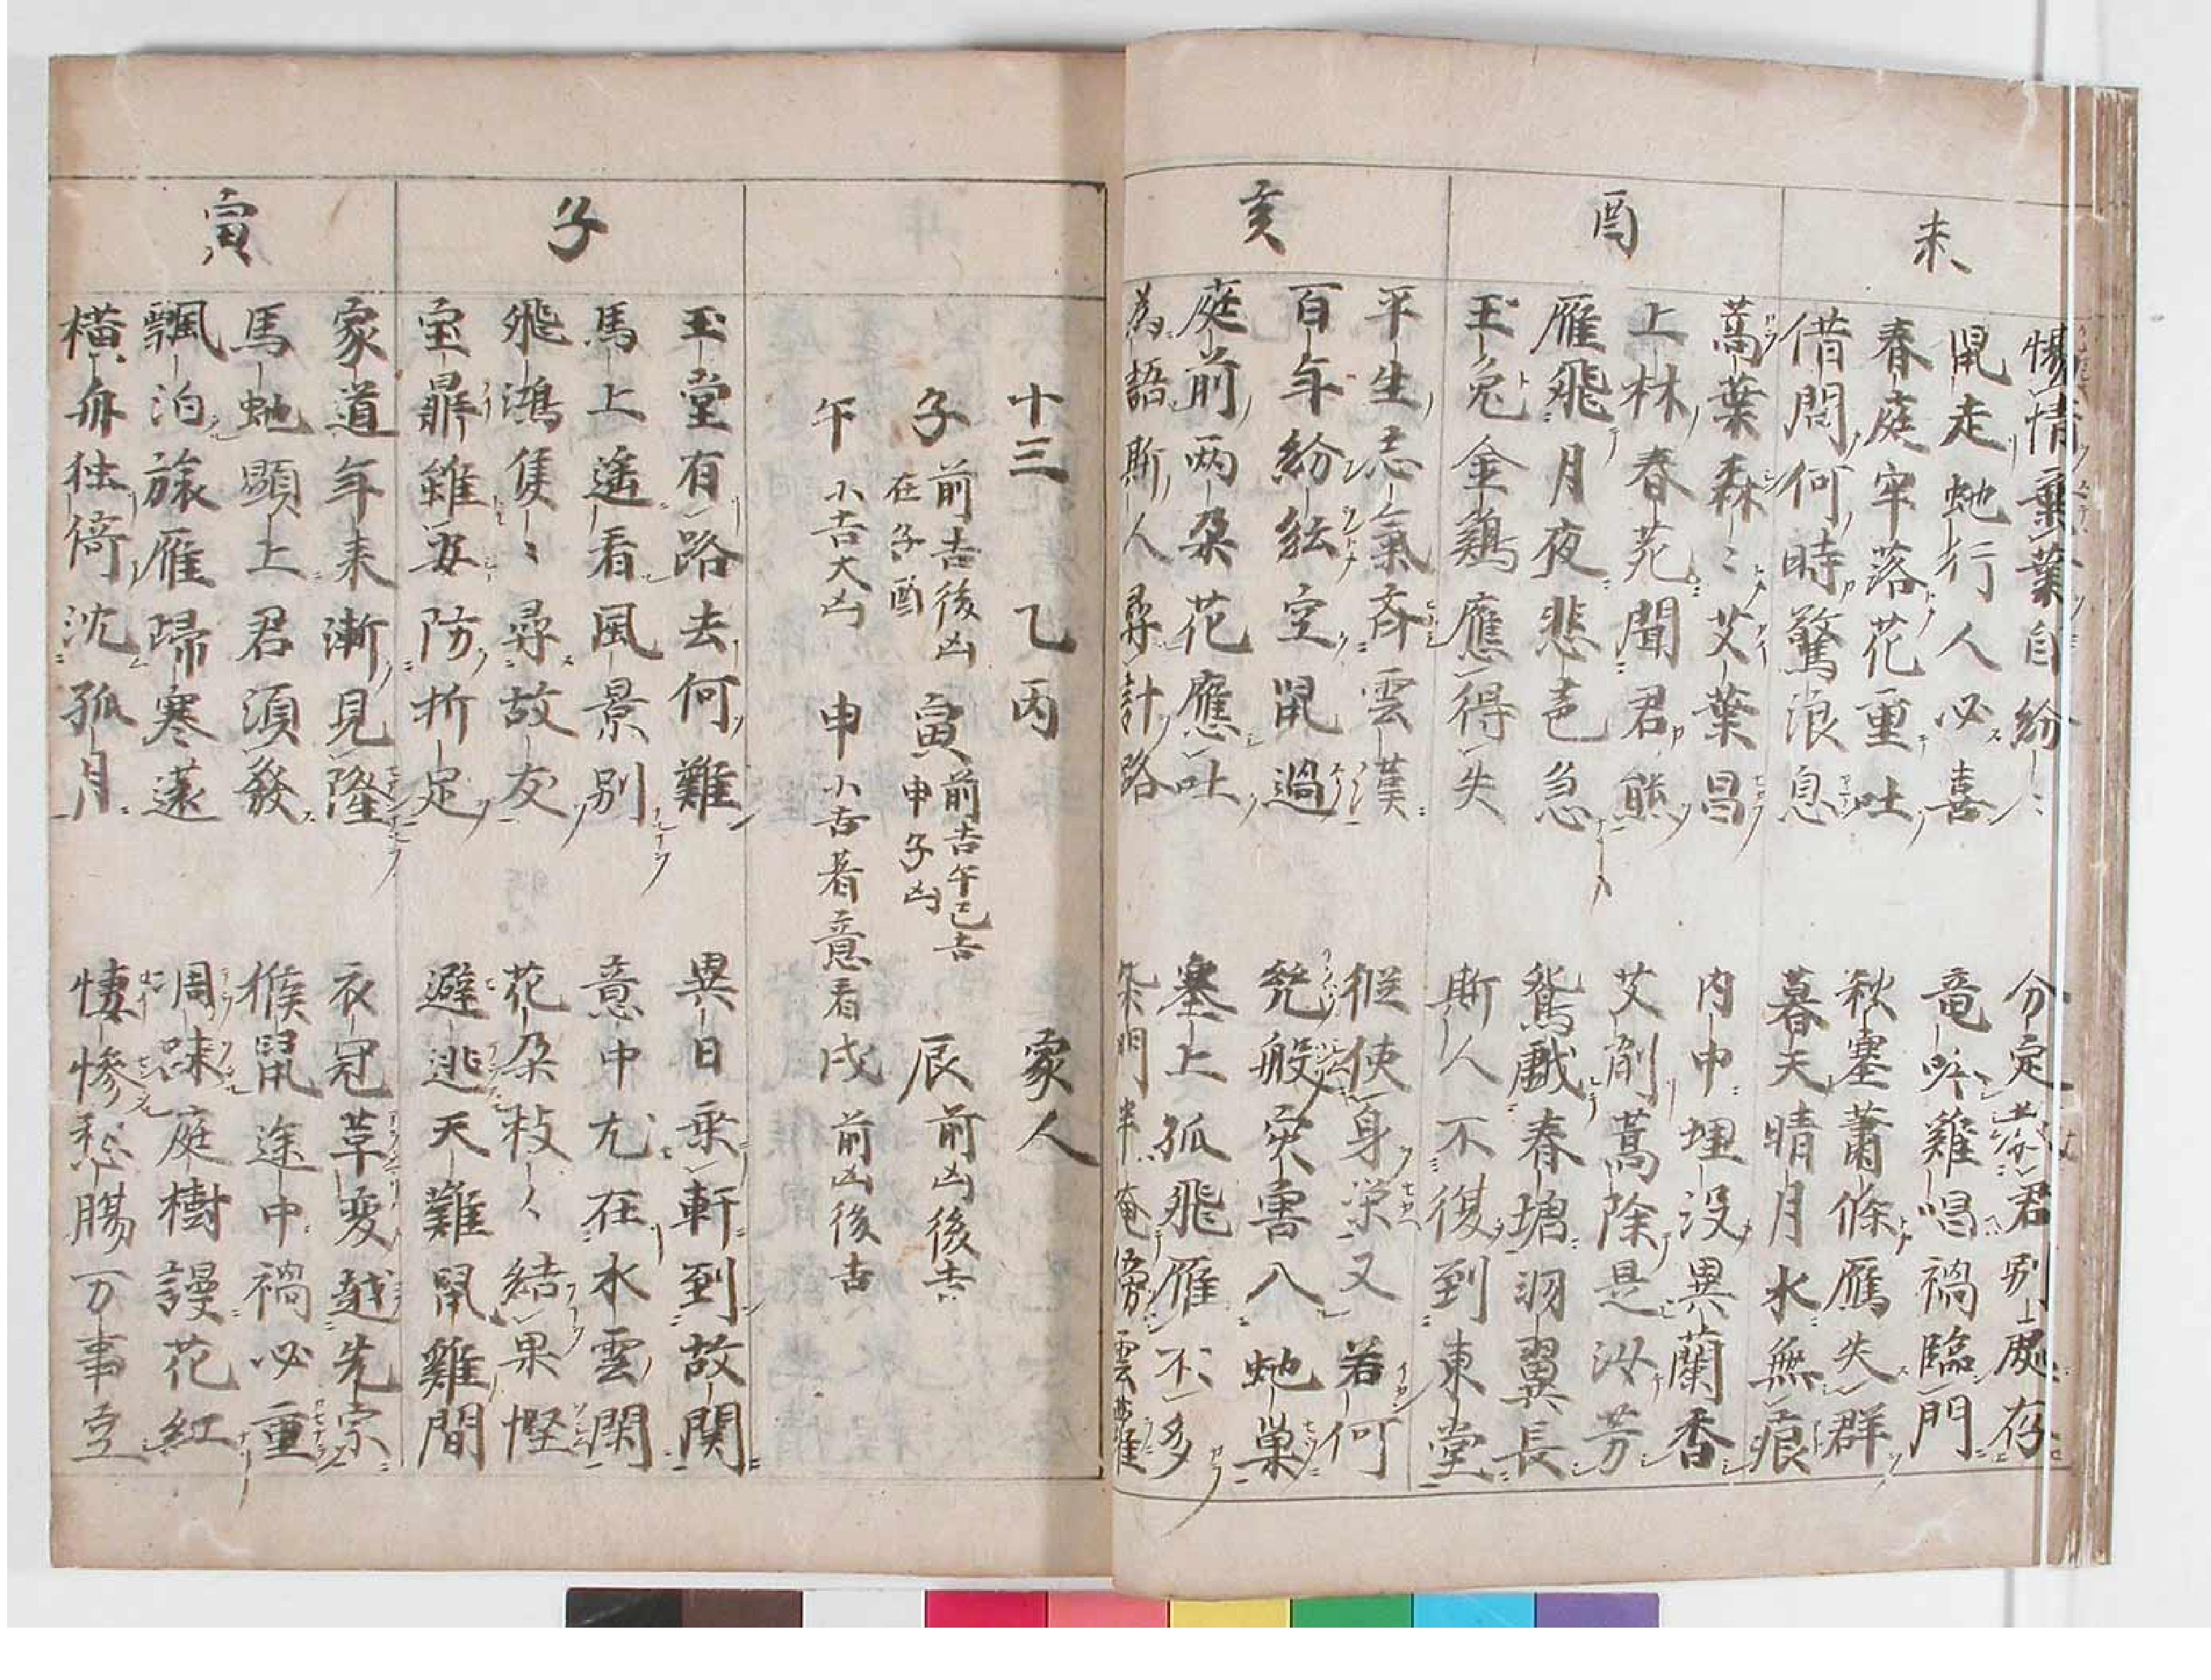 未
惕情葉葉自紛〻
分定君別処存
鼠走虵行人必喜
竜吟雞唱禍臨門
春庭牢落花重吐
秋塞蕭條雁失群
借問何時驚浪息
暮天晴月水無痕
酉
蒿葉森〻艾葉昌
内中埋没異蘭香
上林春苑聞君熊
艾削蒿除是汝芳
雁飛月夜悲声急
鴛戯春塘羽翼長
玉兔金鷄應得失
斯人不復到東堂
亥
平生志氣斉雲漢
縱使身栄又若何
百年紛紜空鼠過
発般突害八虵巣
庭前両朶花應吐
塞上孤飛雁不多
為語斯人尋計路
柴門半掩傍雲蘿
十三 乙丙 家人
子 前吉後凶 在子酉 寅 前吉午巳吉 申子凶 辰 前凶後吉
午 小吉大凶 申 小吉着意看 戌 前凶後吉
子
玉堂有路去何難
異日乗軒到故関
馬上遙看風景別
意中尤在水雲閑
飛鴻隻〻尋故友
花朶枝〻結果慳
宝鼎雖安防折足
避逃天難鼠雞間
寅
家道年来漸見隆
衣冠草変越先宗
馬虵頭上君須發
猴鼠途中禍必重
飄泊旅雁帰寒遠
凋疎庭樹謾花紅
横舟独倚沈孤月
悽惨愁腸万事空